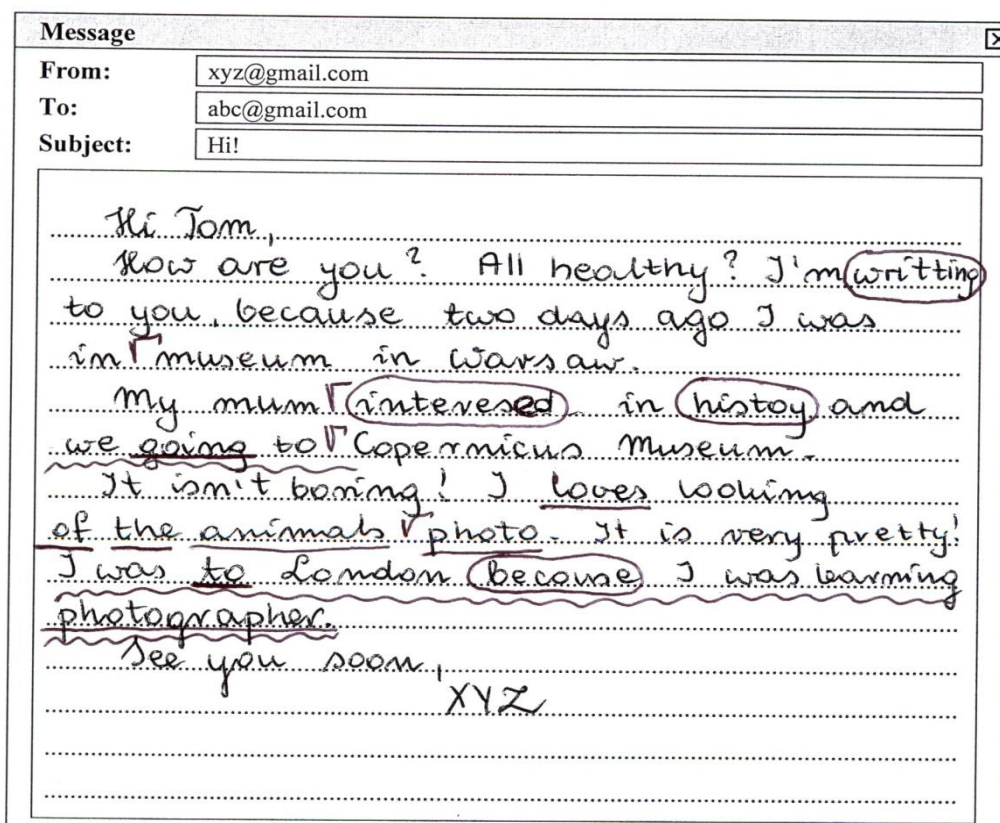 Message
From: xyz@gmail.com
To: abc@gmail.com
Subject: Hi!
Hi Tom,
How are you? All healthy? I'm writting
to you, because two days ago I was
in museum in Warsaw.
My mum interesed in histoy and
we going to Copernicus Museum.
It isn't boring! I loves looking
of the animals photo. It is very pretty!
I was to London becouse I was learning
photographer.
See you soon,
XYZ